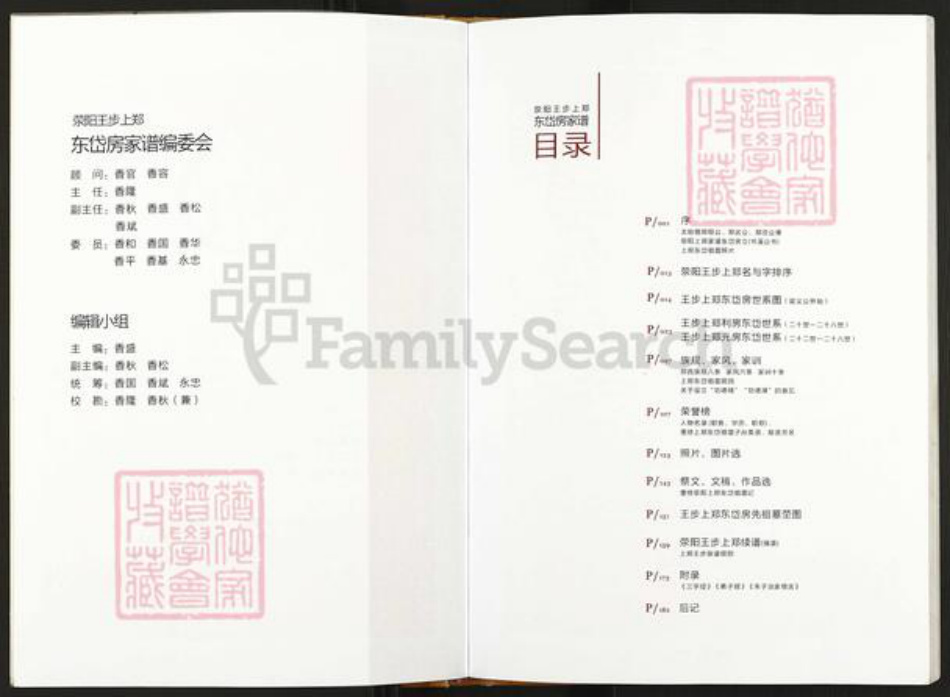 荥阳王步上郑
东岱房家谱编委会
顾 问：香官 香容
主 任：香隆
副主任：香秋 香盛 香松
香斌
委 员：香和 香国 香华
香平 香基 永忠
编辑小组
主 编：香盛
副主编：香秋 香松
统 筹：香国 香斌 永忠
校 勘：香隆 香秋（兼）
FamilySearch
荥阳王步上郑
东岱房家谱
目录
犹他家谱学会收藏
P/001 序
P/013 荥阳王步上郑名与字排序
王步上郑东岱房世系图
王步上郑利房东岱世系（二十世－二十八世）
王步上郑元房东岱世系（二十二世－二十八世）
族规、家风、家训
P/107 荣誉榜
照片、图片选
祭文、文稿、作品选
P/151 王步上郑东岱房先祖墓茔图
P/159 荥阳王步上郑续谱
P/173 附录
《三字经》《弟子规》《朱子治家格言》
后记
犹他家谱学会收藏